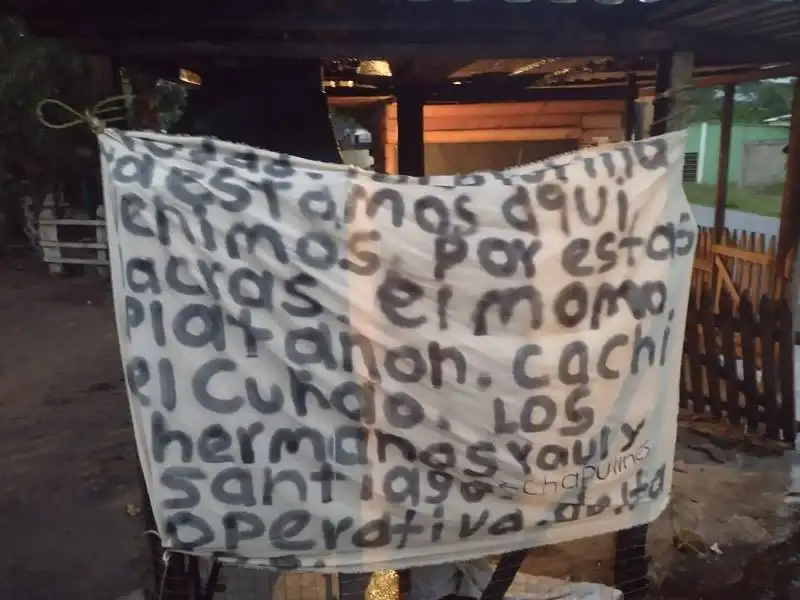 a estamos aqui,
enimos. por estas
lacras. el momo,
platanon. cachi.
el Cuñdo. LOS
hermanos Yaul y
santiago - chapulines
operativa. delta